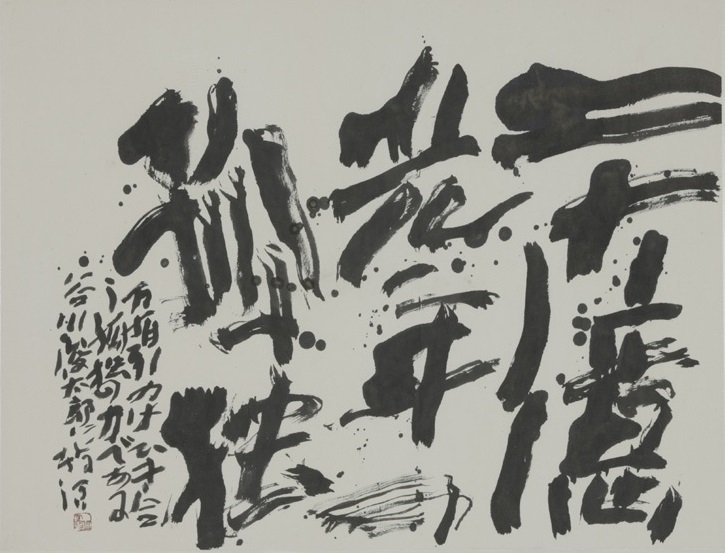 二十億
光年の
孤独
万有引力はひき合
う孤独の力である
谷川俊太郎